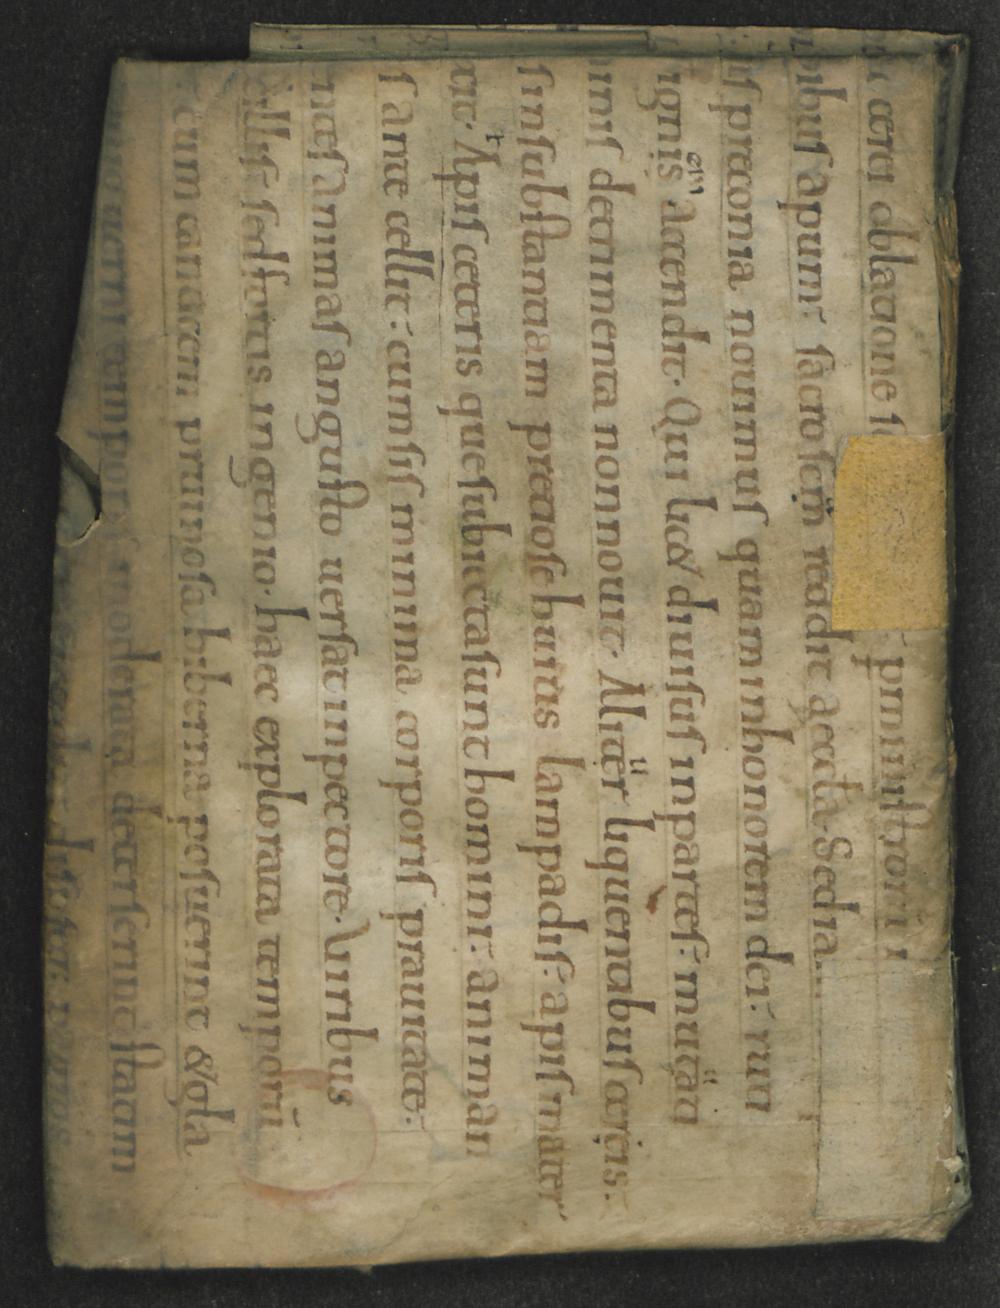 cerei oblatione ministrori
ibus apum: sacro scm reddit aeccla. Sed ia
us praeconia nouimus quam inhonorem dei: ruti
ignis accendit. Qui lic& diuisus in partes: mutuati
inis detrimenta non nouit. Aliter liquentibus ceris:
s in substantiam pretiose huius lampadis: apis mater
xit. Apis ceteris que subiecta sunt homini: animan
s ante cellit: cum sis minima corporis prauitate:
ntes animas angusto uersat inpectore. Uiribus
cillis sed fortis ingenio. haec explorata temporū
cum canitiem pruinosa hiberna posuerint & gla
uerni temporis moderata deterserint statim